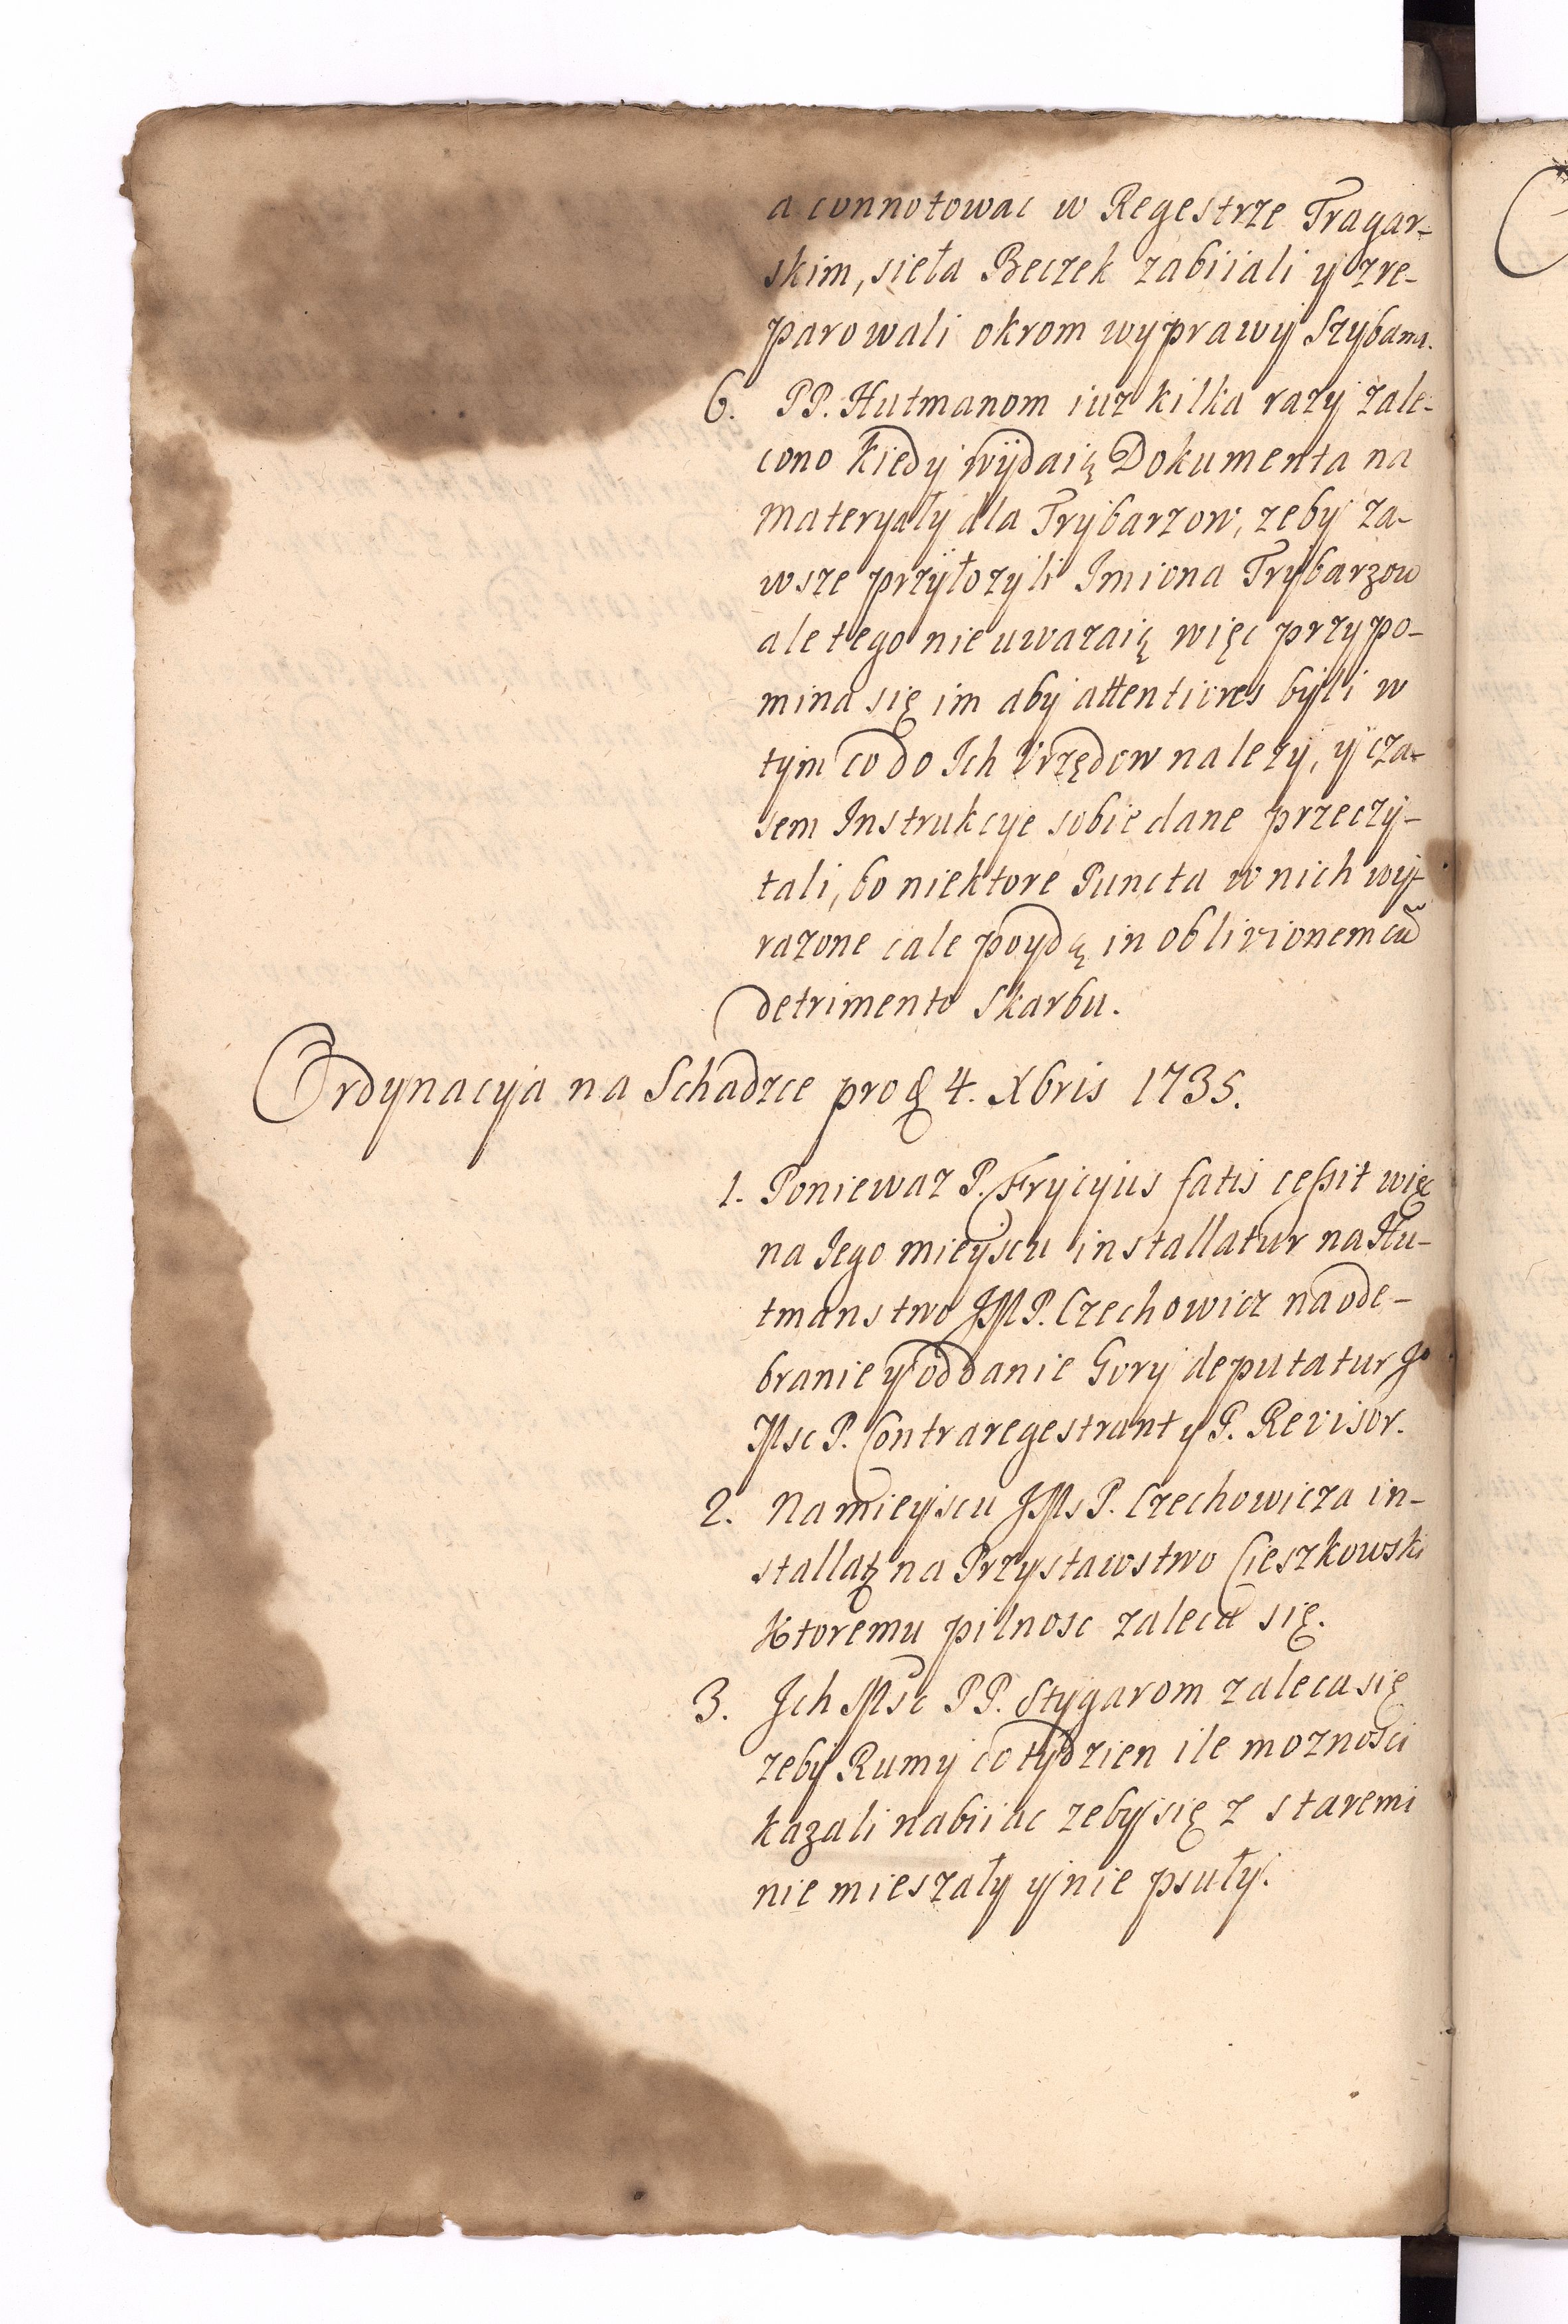 a connotowac w Regestrze Tragar-
skim, sieła Beczek zabiiali y zre-
parowali okrom wyprawy Szybama.
6. PP. Hutmanom iuz kilka razy zale-
cono kiedy wydaią Dokumenta na
materyały dla Trybarzow, zeby za-
wsze przyłozyli Imiona Trybarzow
ale tego nie uwazaią więc przypo-
mina się im aby attentiores byli w
tym co do Ich Vrzędow nalezy, y cza-
sem Instrukcye sobie dane przeczy-
tali, bo niektore Puncta w nich wy-
razone cale poydą in oblivionem cũ
detrimento Skarbu.
Ordynacyja na Schadzce pro d 4. Xbris 1735.
1. Poniewaz P. Frycyius fatis ceßit więc
na Jego mieyscu installatur na Hu-
tmanstwo JMP. Czechowicz na ode-
branie y oddanie Gory deputatur Jo
Msc P. Contraregestrant y P. Revisor.
2. Na mieyscu JMsP. Czechowicza in-
stallat na Przystawstwo Cieszkowski
Ktoremu pilnosc zaleca się.
3. Jch Msc PP. Stygarom zaleca się
zeby Rumy co tydzien ile moznosci
kazali nabiiac zeby się z staremi
nie mieszały y nie psuły.